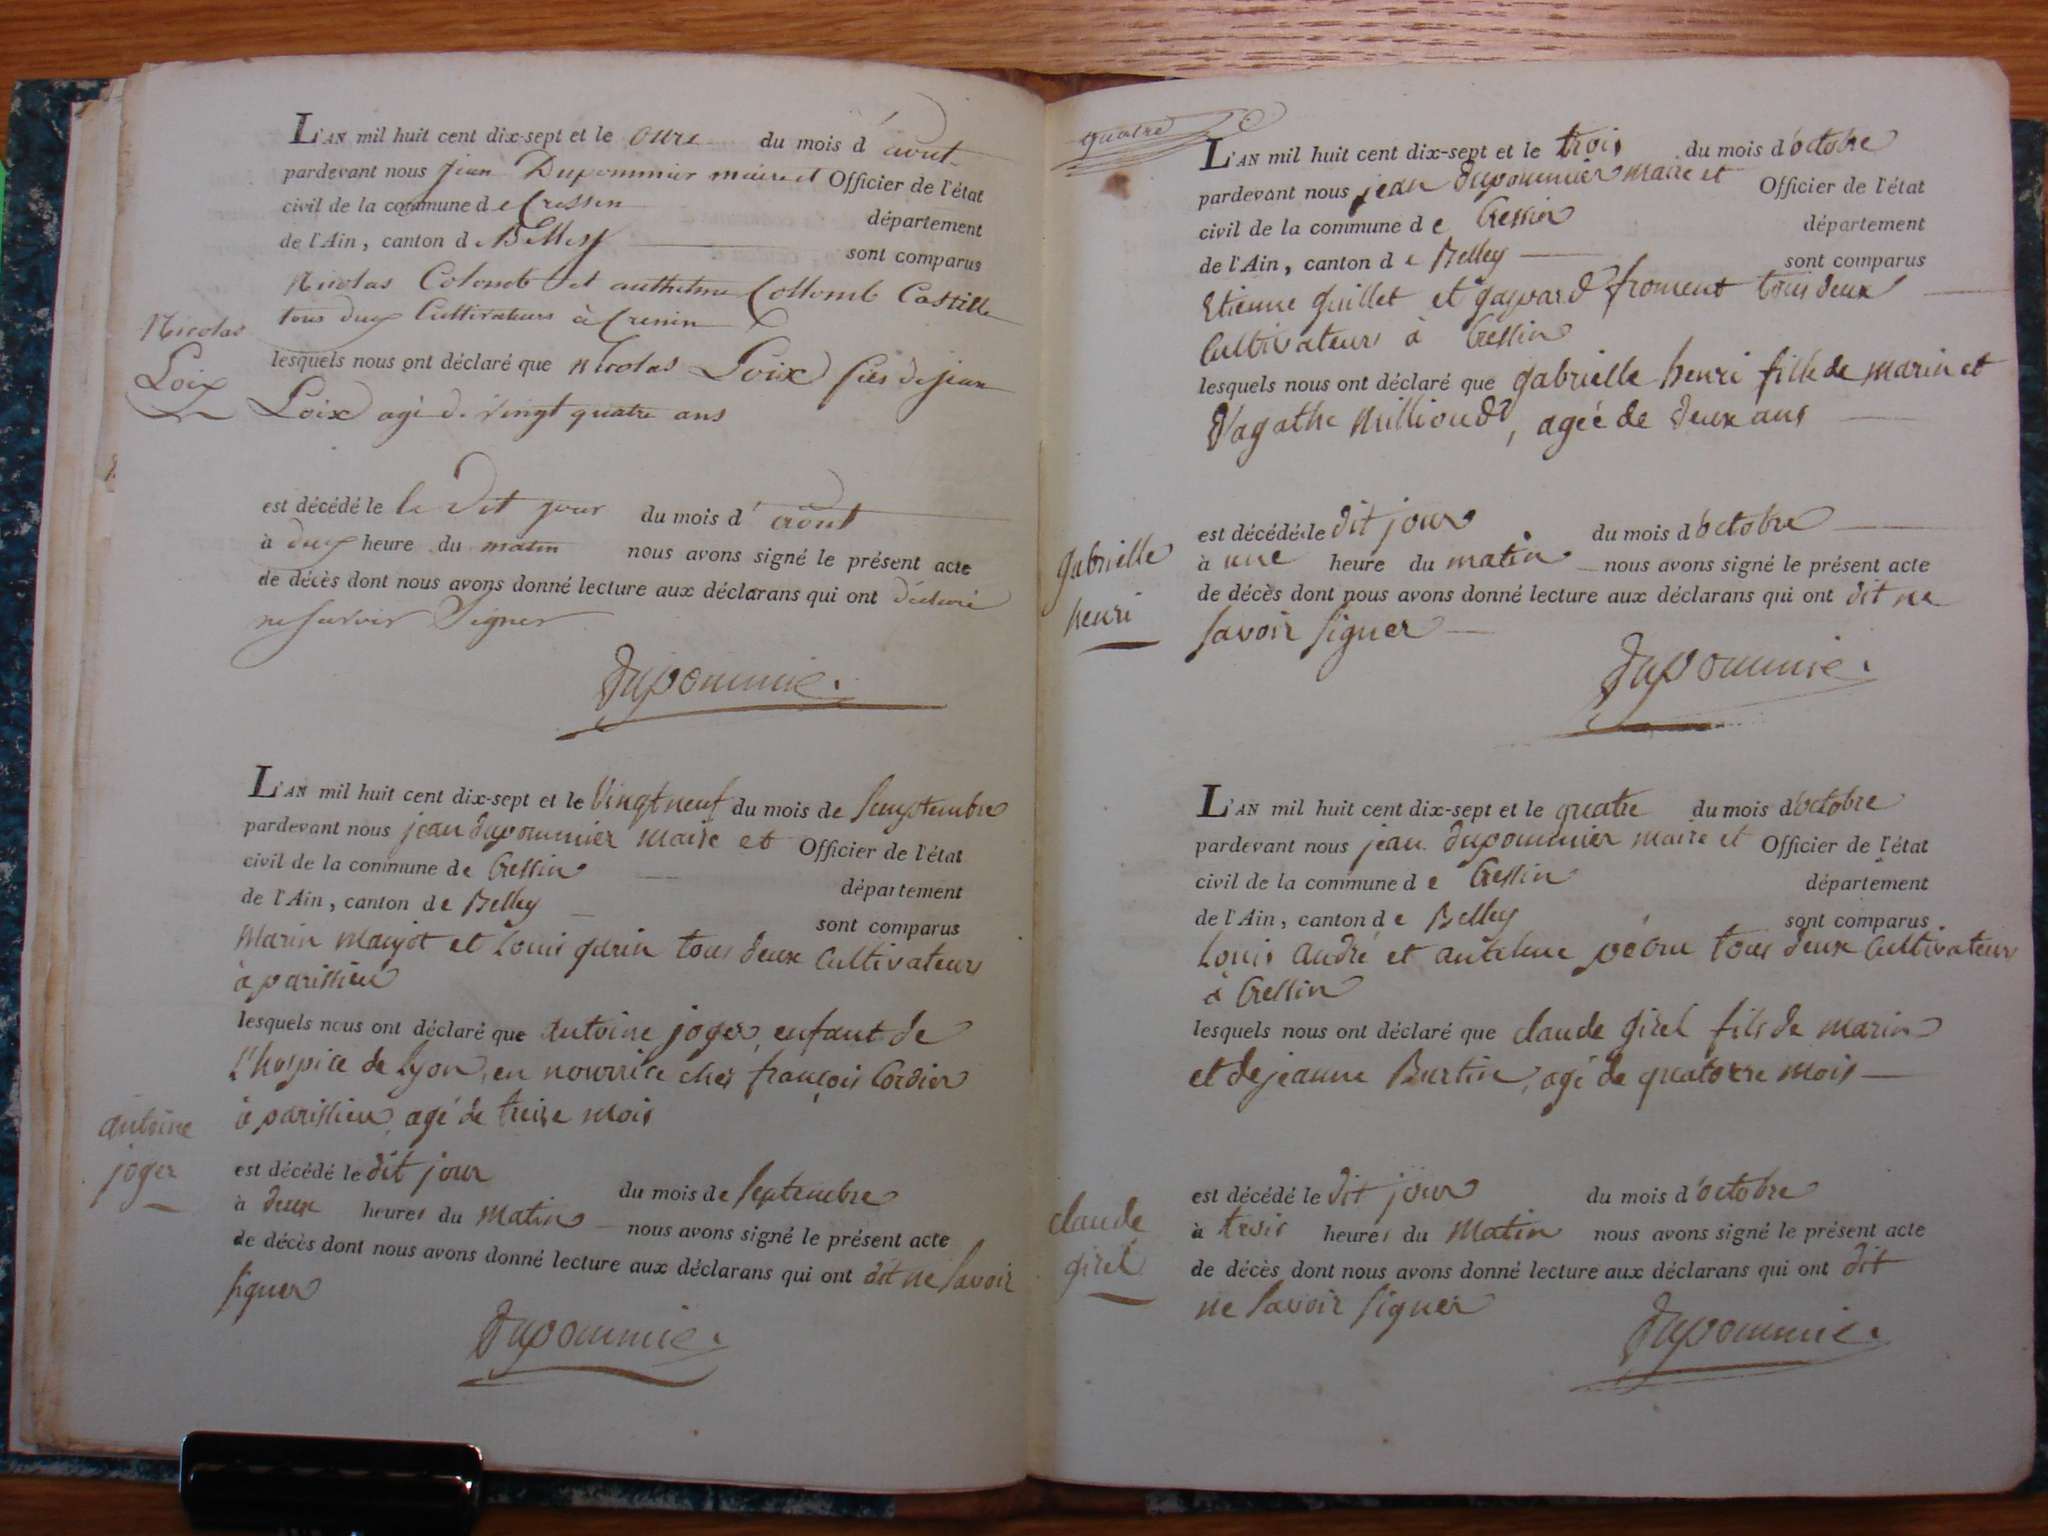 L'AN mil huit cent dix-sept et le onze du mois d'aout
pardevant nous jean Dupommier maire et Officier de l'état
civil de la commune de Cressin département
de l'Ain, canton de Belley sont comparus
Nicolas Colomb et anthelme Collomb Castille
tous deux Cultivateurs à Cressin
Nicolas
Loix
lesquels nous ont déclaré que nicolas Loix fils de jean
Loix agé de vingt quatre ans
est décédé le le dit jour du mois d'aout
à deux heure du matin nous avons signé le présent acte
de décès dont nous avons donné lecture aux déclarans qui ont déclaré
ne savoir signer
dupommié.
L'AN mil huit cent dix-sept et le vingt neuf du mois de semptembre
pardevant nous jean dupommier maire et Officier de l'état
civil de la commune de Cressin département
de l'Ain, canton de Belley sont comparus
marin et Louis garin tous deux cultivateurs
à parissieu
lesquels nous ont déclaré que antoine joger, enfant de
l'hospice de Lyon, en nourrice chés françois Cordier
à parissieu, agé de treise mois
antoine
joger
est décédé le dit jour du mois de septembre
à deux heures du matin nous avons signé le présent acte
de décès dont nous avons donné lecture aux déclarans qui ont dit ne savoir
signer
dupommié.
quatre
L'AN mil huit cent dix-sept et le trois du mois d'octobre
pardevant nous jean dupommier maire et Officier de l'état
civil de la commune de Cressin département
de l'Ain, canton de Belley sont comparus
Etienne guillet et gaspard froment tous deux
Cultivateurs à Cressin
lesquels nous ont déclaré que gabrielle henri fille de marin et
d'agathe millioud, agée de deux ans
gabrielle
henri
est décédé le dit jour du mois d'octobre
à une heure du matin nous avons signé le présent acte
de décès dont nous avons donné lecture aux déclarans qui ont dit ne
savoir signer
dupommié.
L'AN mil huit cent dix-sept et le quatre du mois d'octobre
pardevant nous jean dupommier maire et Officier de l'état
civil de la commune de Cressin département
de l'Ain, canton de Belley sont comparus
Louis andré et antelme tous deux cultivateur
à Cressin
lesquels nous ont déclaré que claude girel fils de marin
et de jeanne Burtin, agé de quatorze mois
claude
girel
est décédé le dit jour du mois d'octobre
à trois heures du matin nous avons signé le présent acte
de décès dont nous avons donné lecture aux déclarans qui ont dit
ne savoir signer
dupommié.